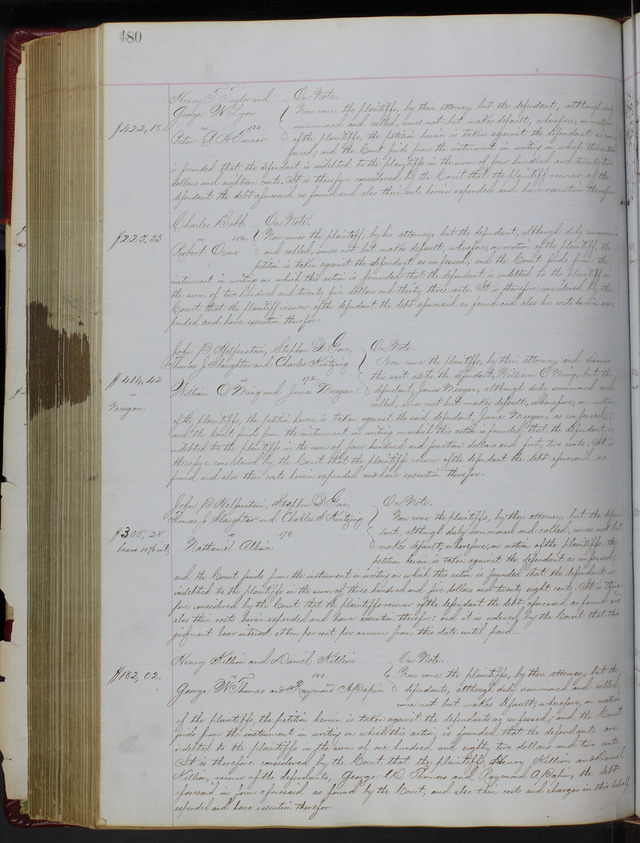 480
Henry T. Taylor and } On Note.
George W. Lyon } Now come the plaintiffs, by their attorney but the defendant, although duly
$422,18. vs 120 summoned and called, comes not but makes default; wherefore, on motion
Peter of the plaintiffs, the petition herein is taken against the defendant as con-
fessed; and the Court finds from the instrument in writing on which this action
is founded that the defendant is indebted to the plaintiffs in the sum of four hundred and twenty two
dollars and eighteen cents. It is therefore considered by the Court that the plaintiffs recover of the
defendant the debt aforesaid as found and also their costs herein expended and have execution therefor.
Charles Bobb On Note.
$225,33 vs } Now comes the plaintiff by his attorney but the defendant, although duly summoned
Robert Orme and called, comes not but makes default; wherefore, on motion of the plaintiff, the
petition is taken against the defendant as confessed; and the Court finds from the
instrument in writing on which this action is founded that the defendant is indebted to the plaintiff in
the sum of two hundred and twenty five dollars and thirty three cents. It is therefore considered by the
Court that the plaintiff recover of the defendant the debt aforesaid as found and also his costs herein ex-
pended and have execution therefor.
John B. Helfenstein, Stephen D. Gore, On Note.
Thomas J. Slaughter and Charles Kintzing } Now come the plaintiffs, by their attorney and dismiss
$414,42 vs 172 this suit as to the defendant William O. King, but the
William O. King and James Neegan defendant, James Neegan, although duly summoned and
Neegan called, comes not but makes default; wherefore, on motion
of the plaintiffs, the petition herein is taken against the said defendant, James Neegan, as confessed;
and the Court finds from the instrument in writing on which this action is founded, that the defendant is
indebted to the plaintiffs in the sum of four hundred and fourteen dollars and forty two cents. It is
therefore considered by the Court that the plaintiffs recover of the defendant the debt aforesaid as
found and also their costs herein expended and have execution therefor.
John B. Helfenstein, Stephen D. Gore, On Note.
Thomas J. Slaughter and Charles S. Kintzing } Now come the plaintiffs, by their attorney but the defen-
$305,28 vs 178 dant, although duly summoned and called, comes not but
bears 10% int. Nathaniel makes default; wherefore, on motion of the plaintiffs, the
petition herein is taken against the defendant as confessed;
and the Court finds from the instrument in writing on which this action is founded that the defendant is
indebted to the plaintiffs in the sum of three hundred and five dollars and twenty eight cents. It is there-
fore considered by the Court that the plaintiffs recover of the defendant the debt aforesaid as found and
also their costs herein expended and have execution therefor: and it is ordered by the Court that this
judgment bear interest at ten per cent per annum from this date until paid.
Henry Killion and Daniel Killion On Note.
$182,02. vs } Now come the plaintiffs, by their attorney, but the
George W. Thomas and Raymond A. Papin defendants, although duly summoned and called,
come not but makes default; wherefore, on motion
of the plaintiffs, the petition herein is taken against the defendants as confessed; and the Court
finds from the instrument in writing on which this action, is founded that the defendants are
indebted to the plaintiffs in the sum of one hundred and eighty two dollars and two cents.
It is therefore considered by the Court that the plaintiffs, Henry Killion and Daniel
Killion, recover of the defendants, George W. Thomas and Raymond A. Papin, the debt
aforesaid in form aforesaid as found by the Court, and also their costs and charges in this behalf
expended and have execution therefor.